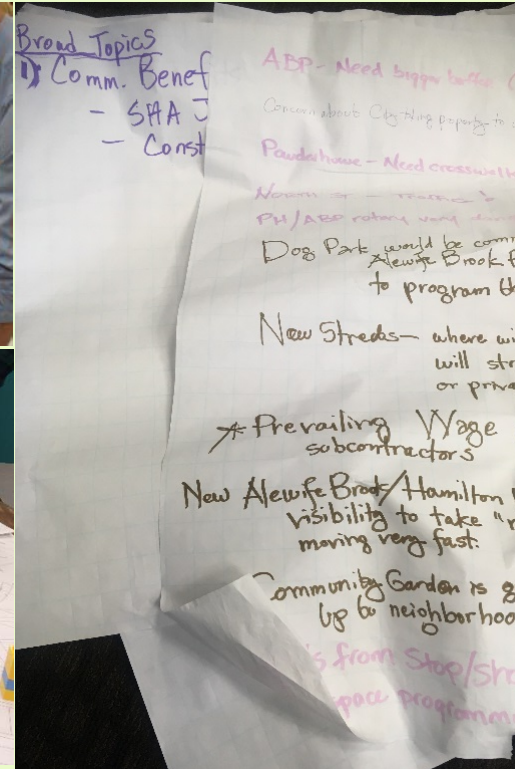 Broad Topics
1) Comm. Benef
- SHA J
- Const
ABP- Need bigger buffer (
Concern about City
Powderhouse - Need crosswalk
North st -
PH/ABP rotary very
Dog Park would be comm
Alewife Brook
to program th
New Streets- where wi
will str
or priva
* Prevailing Wage
subcontractors
New Alewife Brook/Hamilton
visibility to take "r
moving very fast.
Community Garden is g
up to neighborhoo
s from Stop/Sh
pace programm